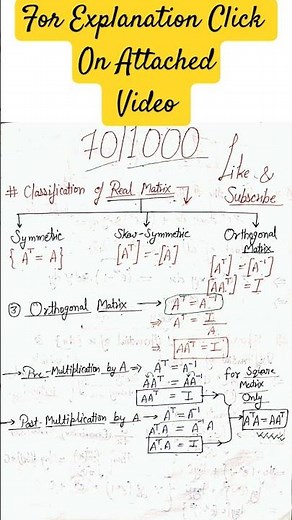 For Explanation Click
On Attached
Video
70/1000
Like &
Subscribe
# Classification of Real Matrix
Symmetric
{ Aᵀ = A }
Skew-Symmetric
[Aᵀ] = -[A]
Orthogonal
Matrix
[Aᵀ] = [A⁻¹]
[AAᵀ] = I
③ Orthogonal Matrix → Aᵀ = A⁻¹
⇒ Aᵀ = I/A
⇒ AAᵀ = I
→ Pre-Multiplication by A ⇒ Aᵀ = A⁻¹
AAᵀ = AA⁻¹
AAᵀ = I
→ Post-Multiplication by A → Aᵀ = A⁻¹
Aᵀ.A = A⁻¹ A
Aᵀ.A = I
for Square
Matrix
Only
AᵀA = AAᵀ